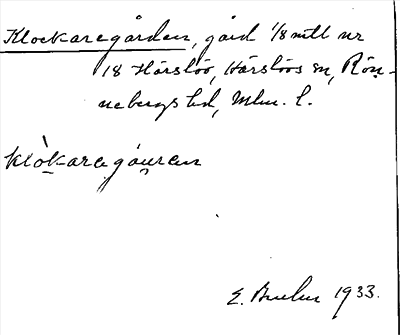 Klockaregården, gård 1/8 mtl nr
18 Härslöv, Härslövs sn, Rön-
nebergs hd, Mlm. l.
klòkaregáu̯ren
E. 1933.